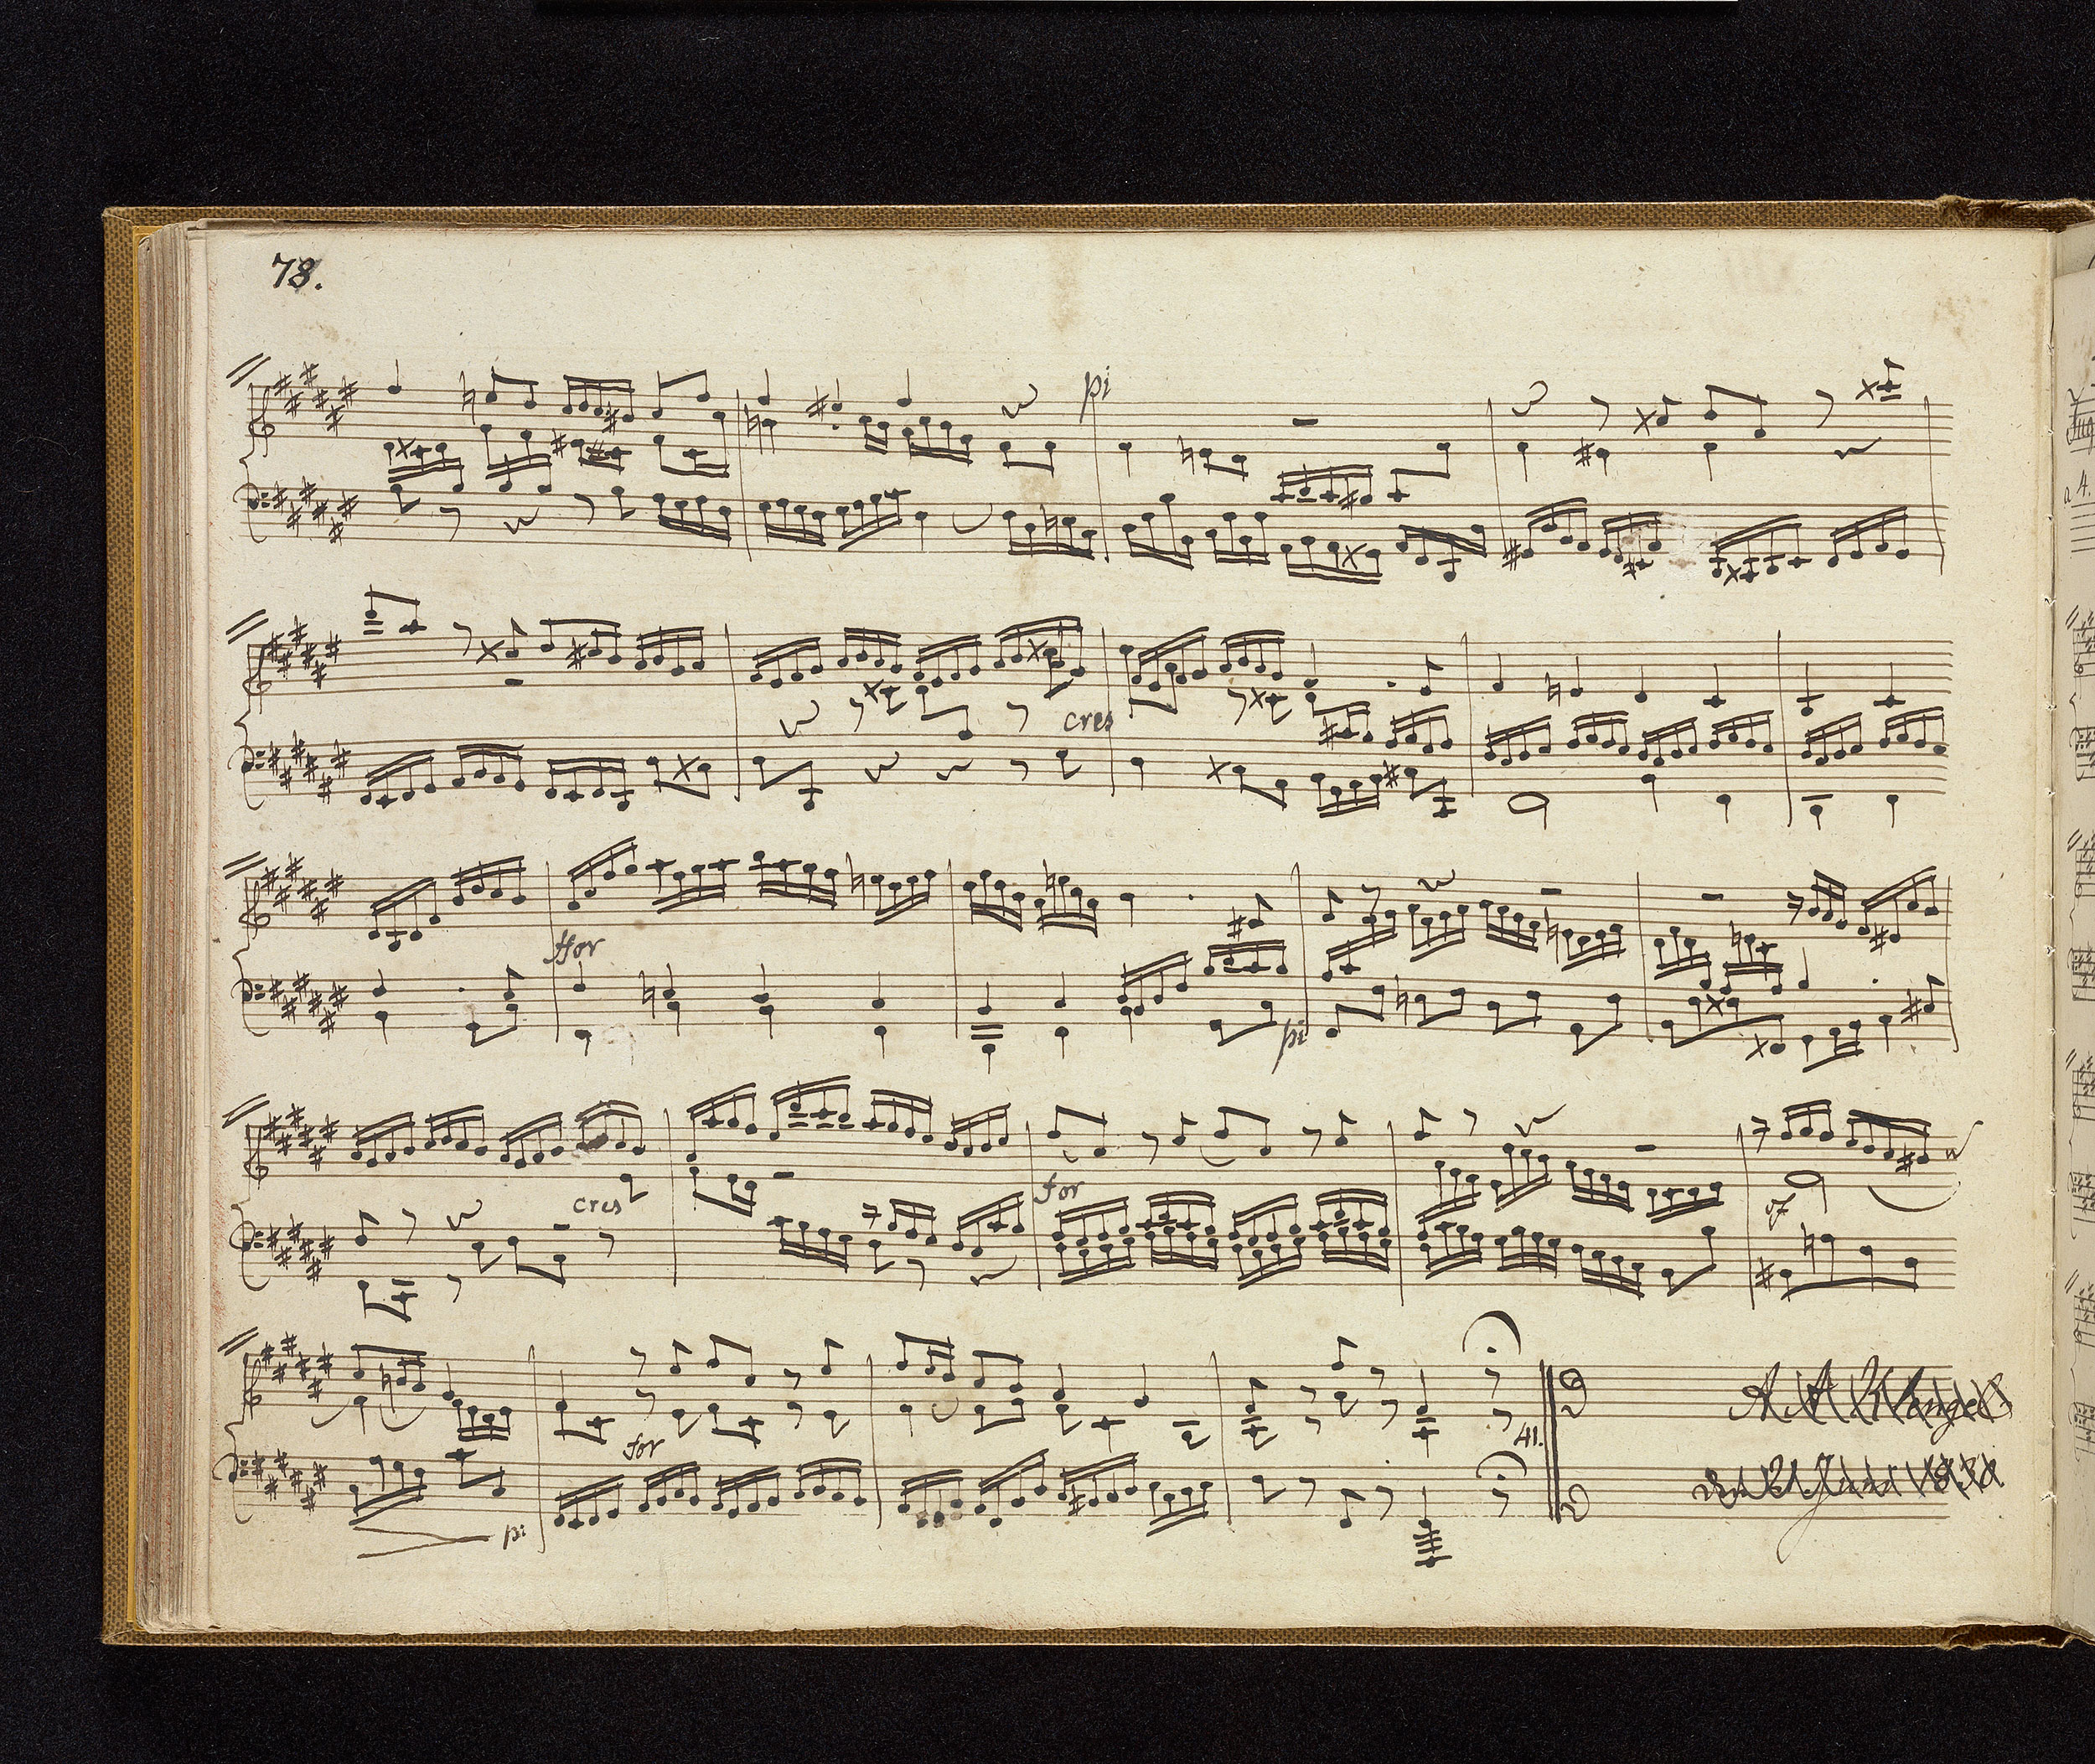 78.
pi
cres
ffor
pi
cres
for
sf
for
41.
pi
a 4.